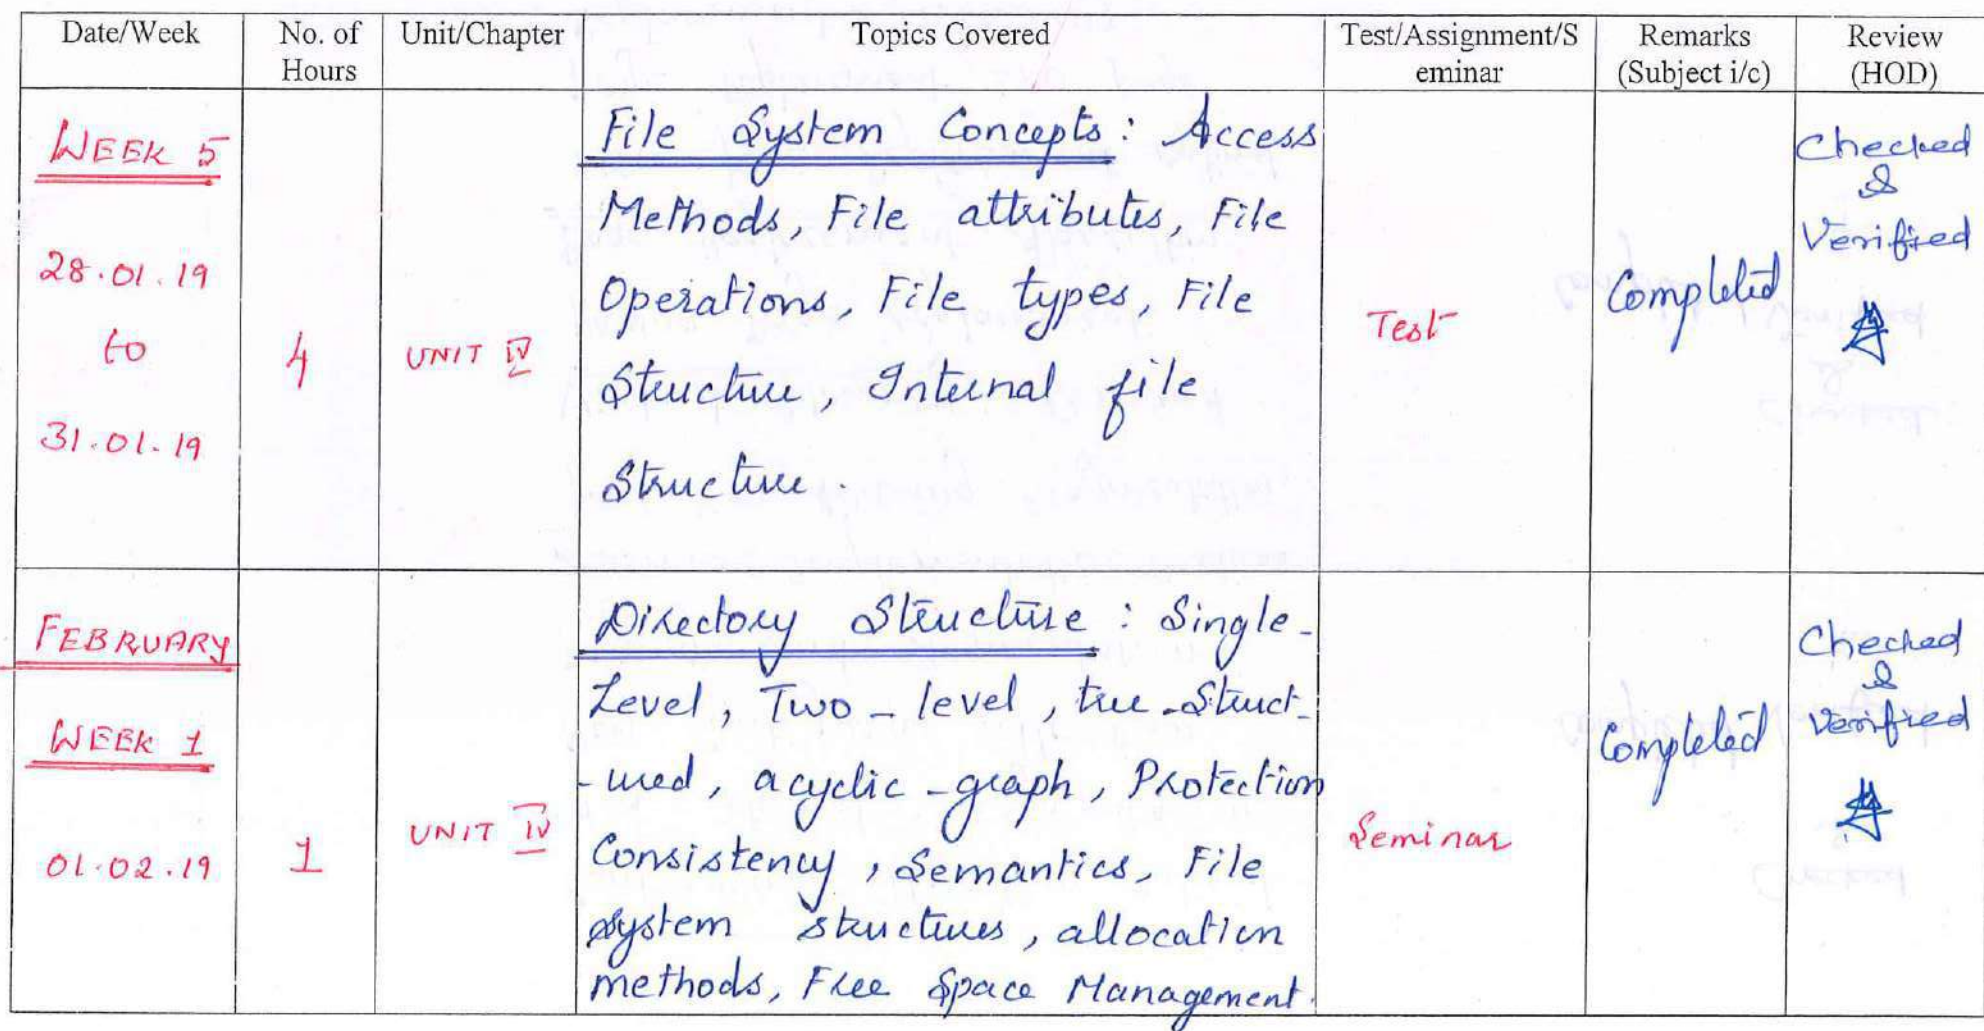 Date/Week No. of Hours Unit/Chapter Topics Covered Test/Assignment/S eminar Remarks (Subject i/c) Review (HOD)
WEEK 5
28.01.19
to
31.01.19
4
UNIT IV
File System Concepts : Access
Methods, File attributes, File
Operations, File types, File
Structure, Internal file
Structure.
Test
Completed
Checked
&
Verified
FEBRUARY
WEEK 1
01.02.19
1
UNIT IV
Directory Structure : Single-
Level, Two-level, tree-Struct-
-ured, acyclic-graph, Protection
Consistency, Semantics, File
System structures, allocation
methods, Free Space Management.
Seminar
Completed
Checked
&
Verified